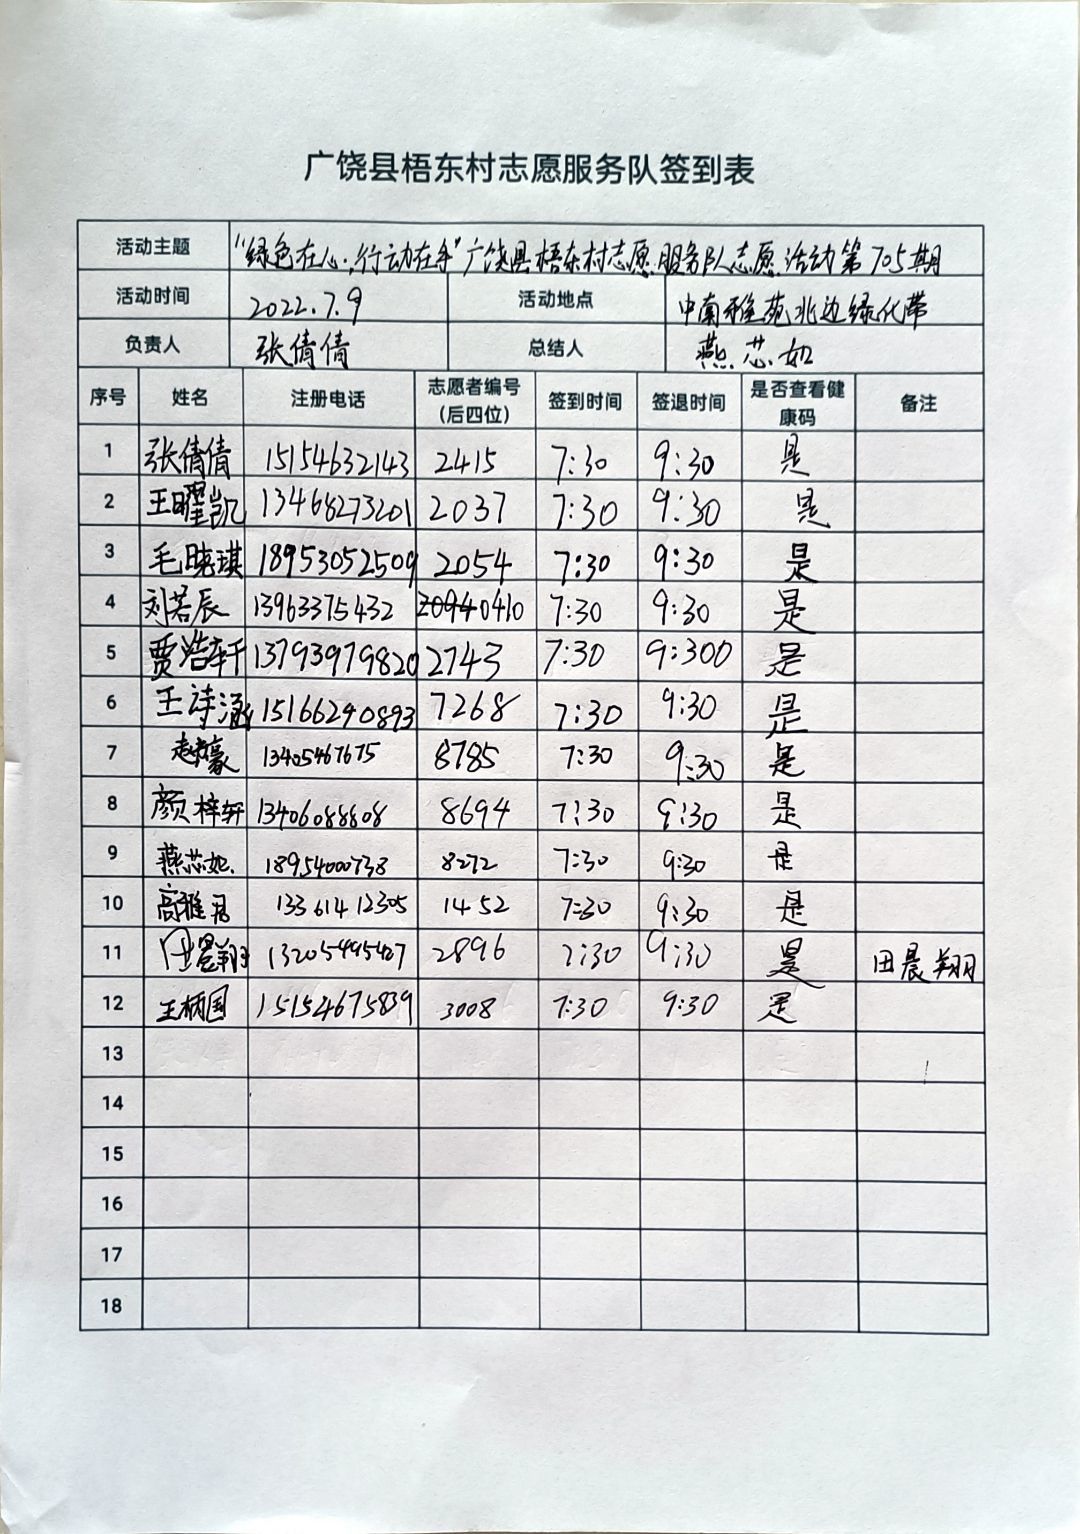 广饶县梧东村志愿服务队签到表
活动主题 "绿色在心,行动在手"广饶县梧东村志愿服务队志愿活动第705期
活动时间 2022.7.9 活动地点 中南雅苑北边绿化带
负责人 张倩倩 总结人 燕芯如
序号 姓名 注册电话 志愿者编号(后四位) 签到时间 签退时间 是否查看健康码 备注
1 张倩倩 15154632143 2415 7:30 9:30 是
2 王曜凯 13468273201 2037 7:30 9:30 是
3 毛晓琪 18953052509 2054 7:30 9:30 是
4 刘若辰 13963375432 0410 7:30 9:30 是
5 贾浩轩 13793979820 2743 7:30 9:300 是
6 王诗涵 15166290893 7268 7:30 9:30 是
7 13405467675 8785 7:30 9:30 是
8 颜梓轩 13406088608 8694 7:30 9:30 是
9 燕芯如 18954000738 8272 7:30 9:30 是
10 高雅君 13361412305 1452 7:30 9:30 是
11 田晨翔 13205495427 2896 7:30 9:30 是 田晨翔
12 王柄国 15154675839 3008 7:30 9:30 是
13
14
15
16
17
18